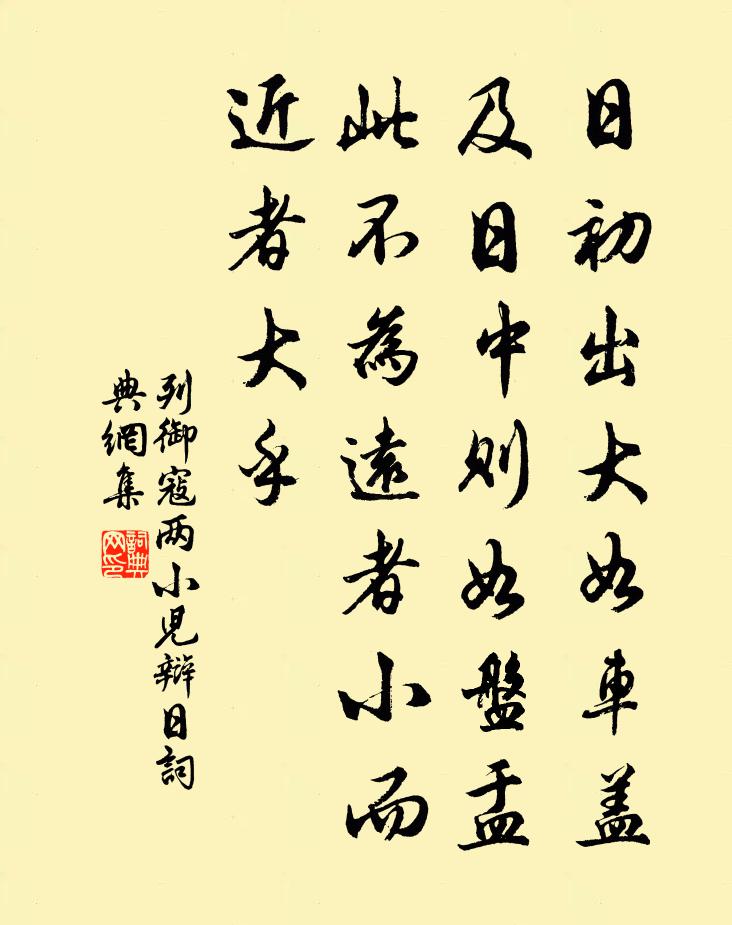 日初出大如車盖
及日中則如盤盂
此不為遠者小而
近者大乎
列御寇两小児辯日詞
典網集
詞典
网印